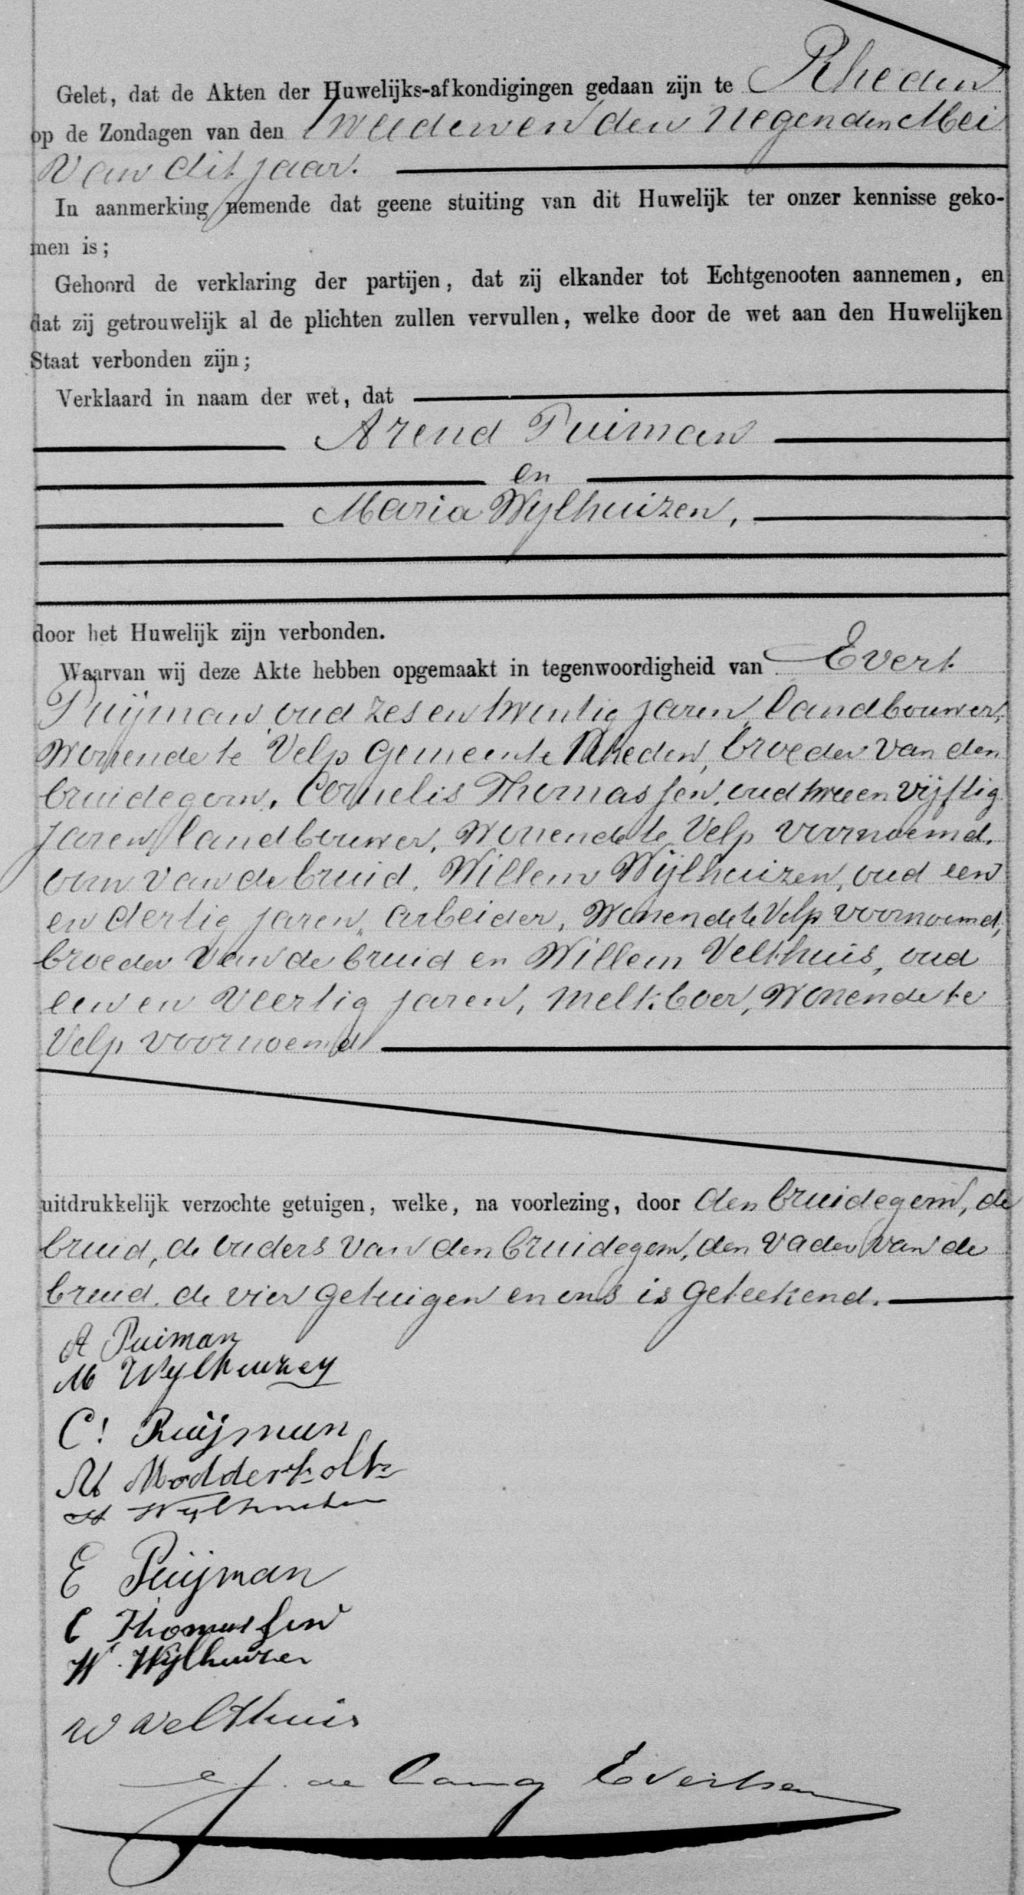 Gelet, dat de Akten der Huwelijks-afkondigingen gedaan zijn te Rheden
op de Zondagen van den tweeden en den negenden Mei
van dit jaar.
In aanmerking nemende dat geene stuiting van dit Huwelijk ter onzer kennisse geko-
men is;
Gehoord de verklaring der partijen, dat zij elkander tot Echtgenooten aannemen, en
dat zij getrouwelijk al de plichten zullen vervullen, welke door de wet aan den Huwelijken
Staat verbonden zijn;
Verklaard in naam der wet, dat
Arend Puiman
en
Maria Wijlhuizen,
door het Huwelijk zijn verbonden.
Waarvan wij deze Akte hebben opgemaakt in tegenwoordigheid van Evert
Puijman, oud zes en twintig jaren, landbouwer,
wonende te Velp gemeente Rheden, broeder van den
bruidegom, Cornelis Thomassen, oud twee en vijftig
jaren, landbouwer, wonende te Velp voornoemd,
oom van de bruid, Willem Wijlhuizen, oud een
en dertig jaren, arbeider, wonende te Velp voornoemd,
broeder van de bruid en Willem Velthuis, oud
een en veertig jaren, melkboer, wonende te
Velp voornoemd
uitdrukkelijk verzochte getuigen, welke, na voorlezing, door den bruidegom, de
bruid, de ouders van den bruidegom, den vader van de
bruid, de vier getuigen en ons is geteekend.
A Puiman
M Wylhuizen
C! Puijman
M Modderkolk
H Wijlhuizen
E Puijman
C Thomassen
W. Wijlhuizen
W Velthuis
de Lang Evertsen